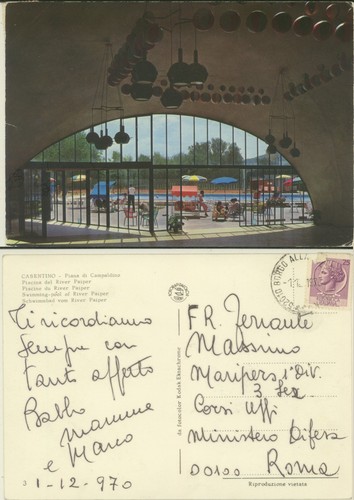 CASENTINO - Piana di Campaldino
Piscine del River Paiper
Piscine du River Paiper
Swimming-pool of River Paiper
Schwimmbad vom River Paiper
Ti ricordiamo
sempre con
tanto affetto
Babbo
mamma
e Marco
3
1-12-970
da fotocolor Kodak Ektachrome
FR. Ferrante
Massimo
Maripers 1ª Div.
3 Sez
Corsi Uffi
Ministero Difesa
00100 Roma
Riproduzione vietata